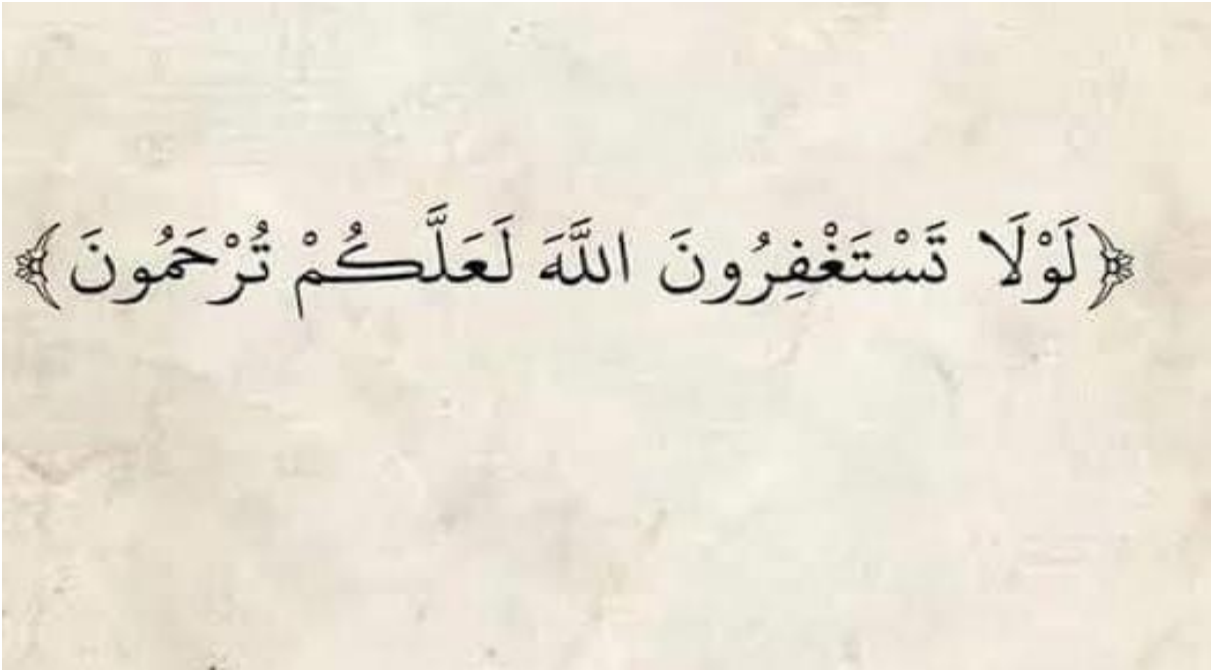 ﴿لَوْلَا تَسْتَغْفِرُونَ اللَّهَ لَعَلَّكُمْ تُرْحَمُونَ﴾